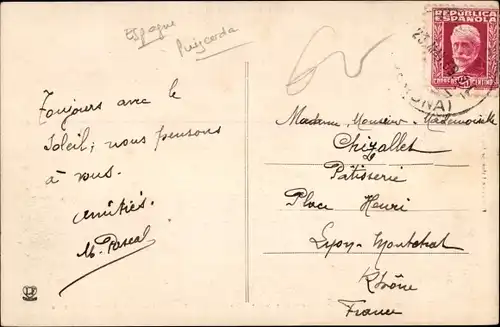 Espagne
Puigcerda
REPUBLICA
ESPAÑOLA
Toujours avec le
Soleil; nous pensons
à vous.
amitiés.
M. Pascal
Madame, Monsieur, Mademoiselle
Chizallet
Pâtisserie
Place Henri
Lyon-Montchat
Rhône
France